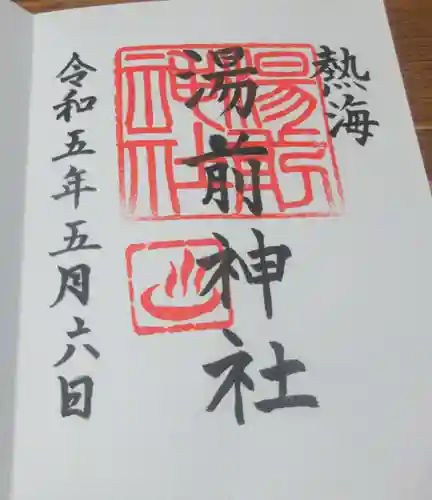 熱海
湯前神社
令和五年五月十六日
湯前神社